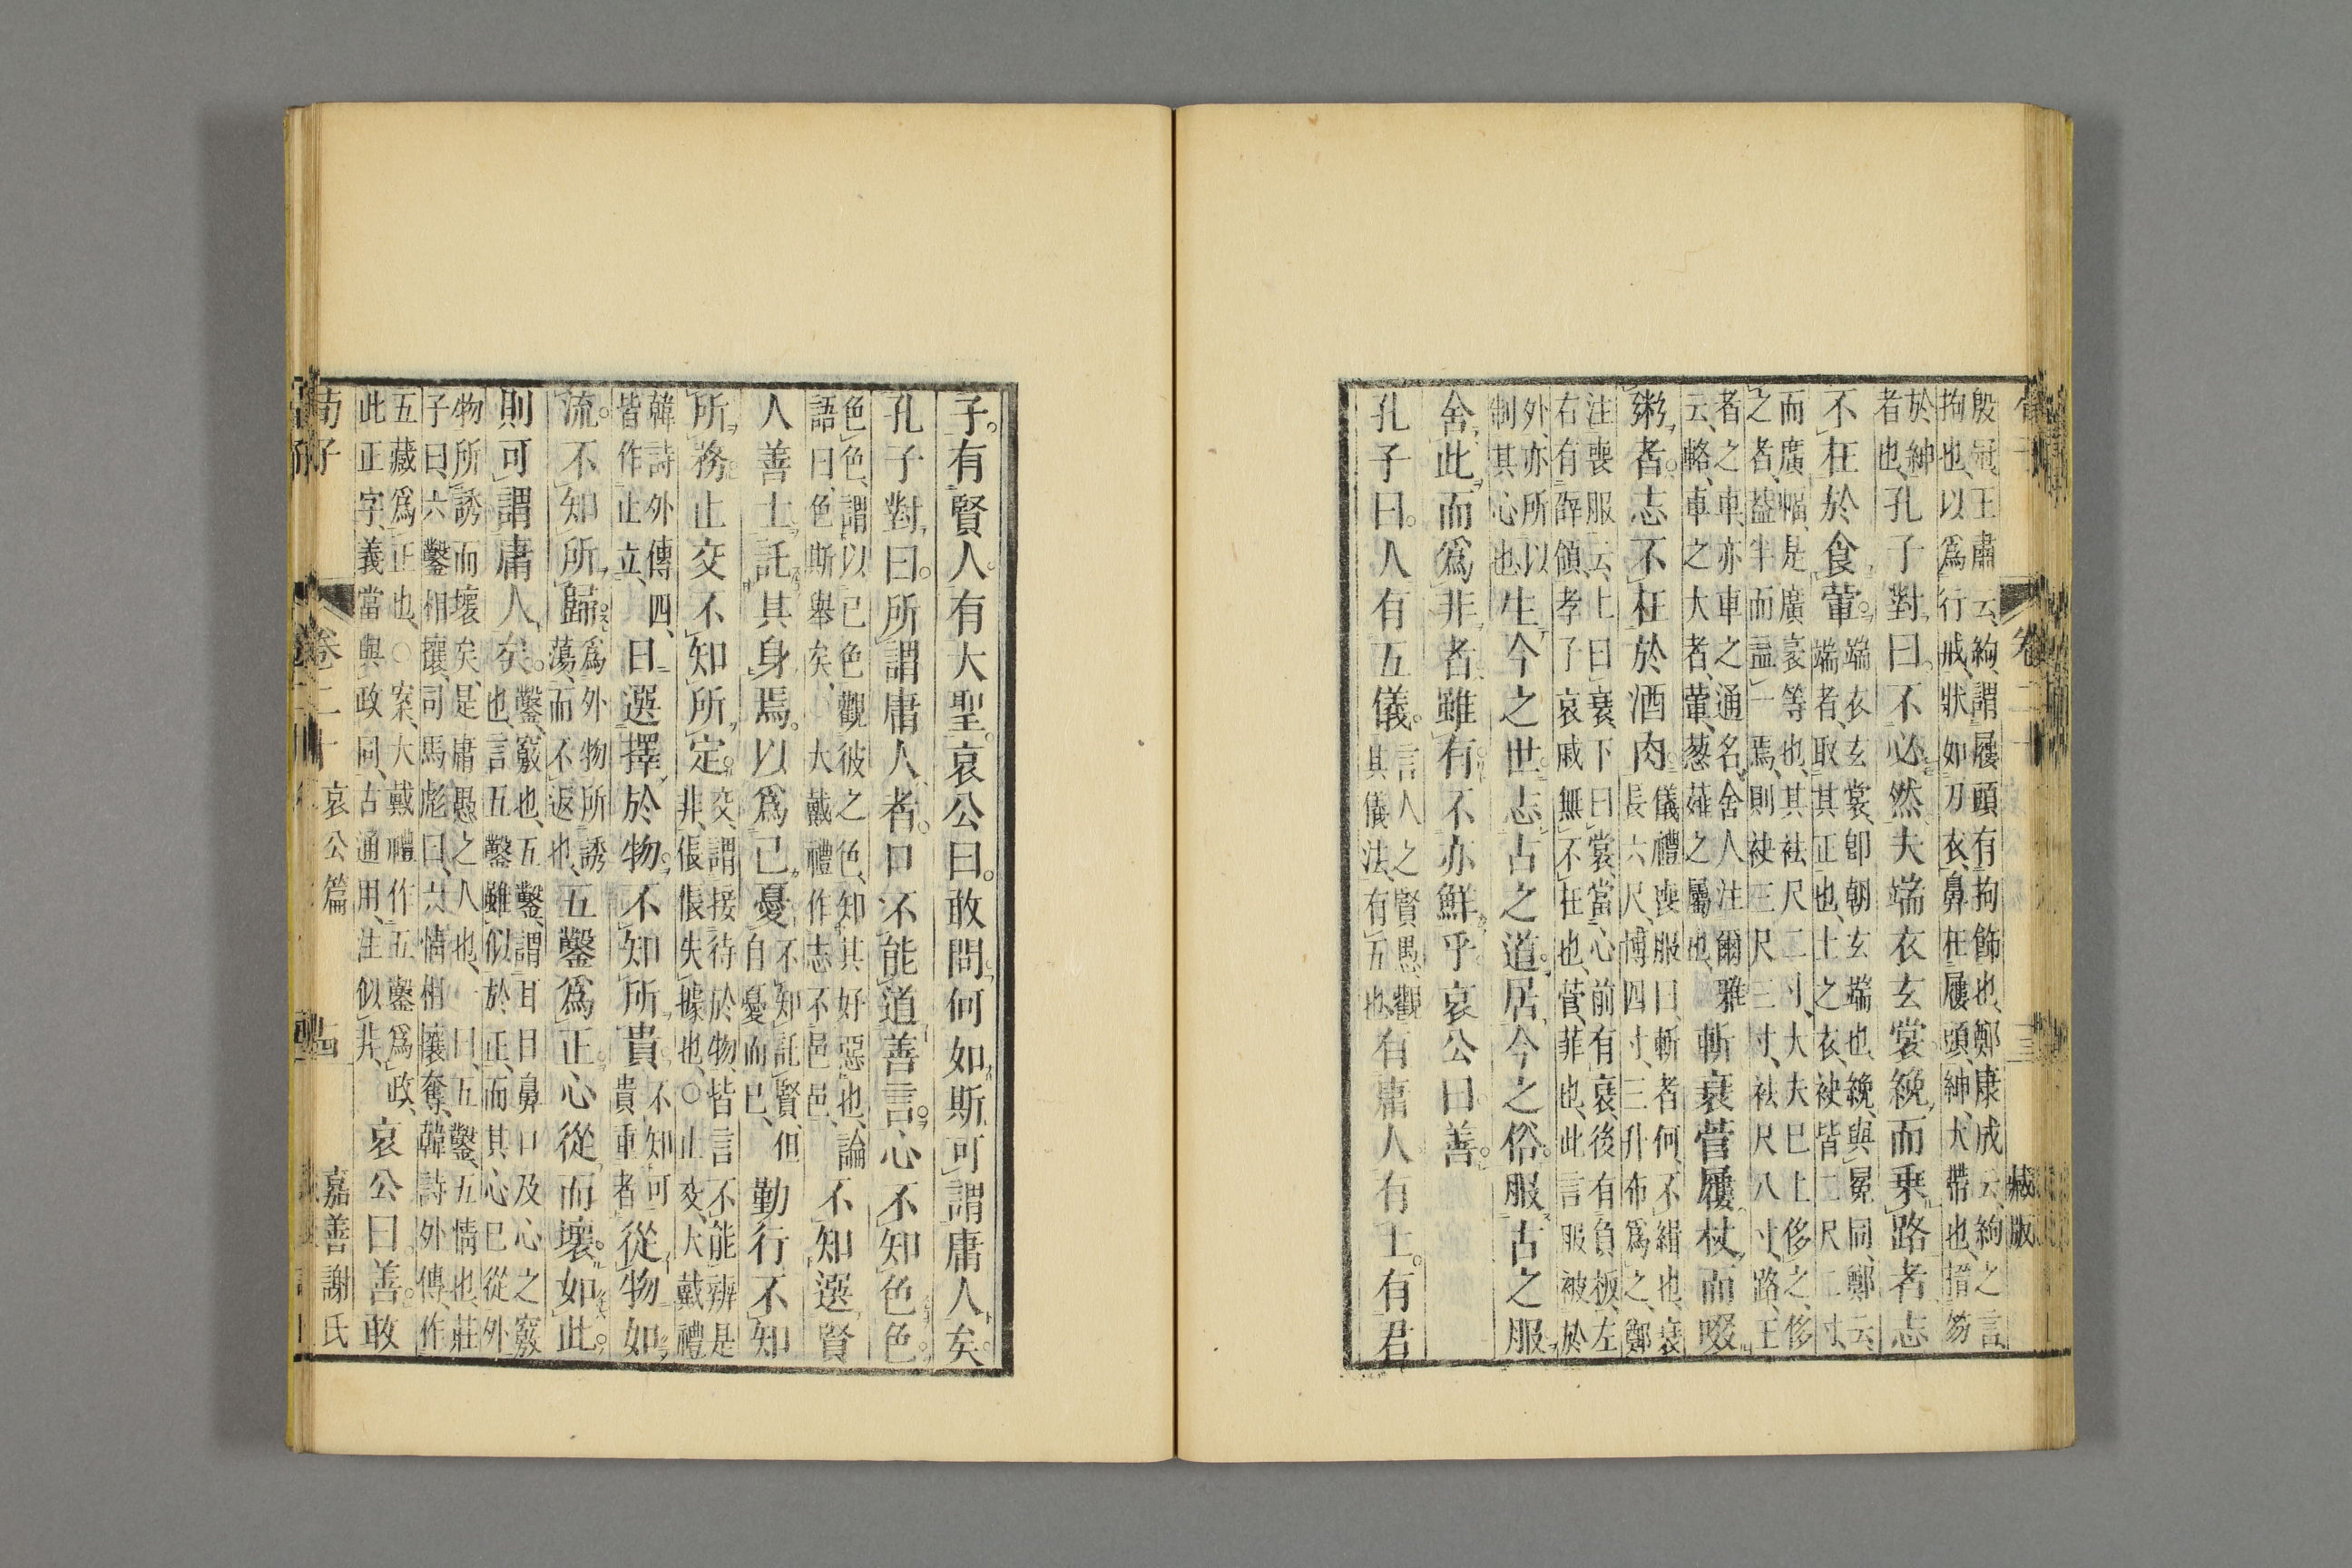 卷二十 三 藏版
殷冠、王肅云、絇、謂屨頭有拘飾也、鄭康成云、絇之言
拘也、以爲行戒、狀如刀衣、鼻在屨頭、紳、大帶也、搢笏
於紳
者也、孔子對曰。不必然夫端衣玄裳絻而乗路者志
不在於食葷。端衣玄裳、卽朝玄端也、絻與冕同、鄭云、
端者、取其正也、士之衣、袂皆二尺二寸、
而廣幅、是廣袤等也、其袪尺二寸、大夫已上侈之、侈
之者、葢半而益一焉、則袂三尺三寸、袪尺八寸、路、王
者之車、亦車之通名、舍人注爾雅
云、輅、車之大者、葷、葱薤之屬也、斬衰菅屨杖而啜
粥者。志不在於酒肉。儀禮喪服曰、斬者何、不緝也、衰
長六尺、博四寸、三升布爲之、鄭
注喪服云、上曰衰、下曰裳、當心前有衰、後有負板、左
右有辟領、孝子哀戚無不在也、菅、菲也、此言服被於
外、亦所以
制其心也生今之世志古之道。居今之俗。服古之服、
舍此而爲非者雖有不亦鮮乎哀公曰善。
孔子曰。人有五儀。言人之賢愚、觀
其儀法、有五也有庸人有士。有君
子。有賢人。有大聖。哀公曰。敢問何如斯可謂庸人矣。
孔子對曰。所謂庸人者。口不能道善言。心不知色色。
色色、謂以己色觀彼之色、知其好惡也、論
語曰、色斯舉矣、大戴禮作志不邑邑、不知選賢
人善士託其身焉。以爲己憂不知託賢、但
自憂而已、勤行不知
所務止交不知所定。交、謂接待於物、皆言不能辨是
非、倀倀失據也、○止交、大戴禮
韓詩外傳四、
皆作止立、日選擇於物。不知所貴。不知可
貴重者從物如
流。不知所歸爲外物所誘
蕩、而不返也、五鑿爲正。心從而壞。如此。
則可謂庸人矣。鑿、竅也、五鑿、謂耳目鼻口及心之竅
也、言五鑿雖似於正、而其心已從外
物所誘而壞矣、是庸愚之人也、一曰、五鑿、五情也、莊
子曰、六鑿相攘、司馬彪曰、六情相攘奪、韓詩外傳、作
五藏爲正也、○案、大戴禮作五鑿爲政、
此正字、義當與政同、古通用、注似非、哀公曰。善。敢
荀子 卷二十 哀公篇 十四 嘉善謝氏